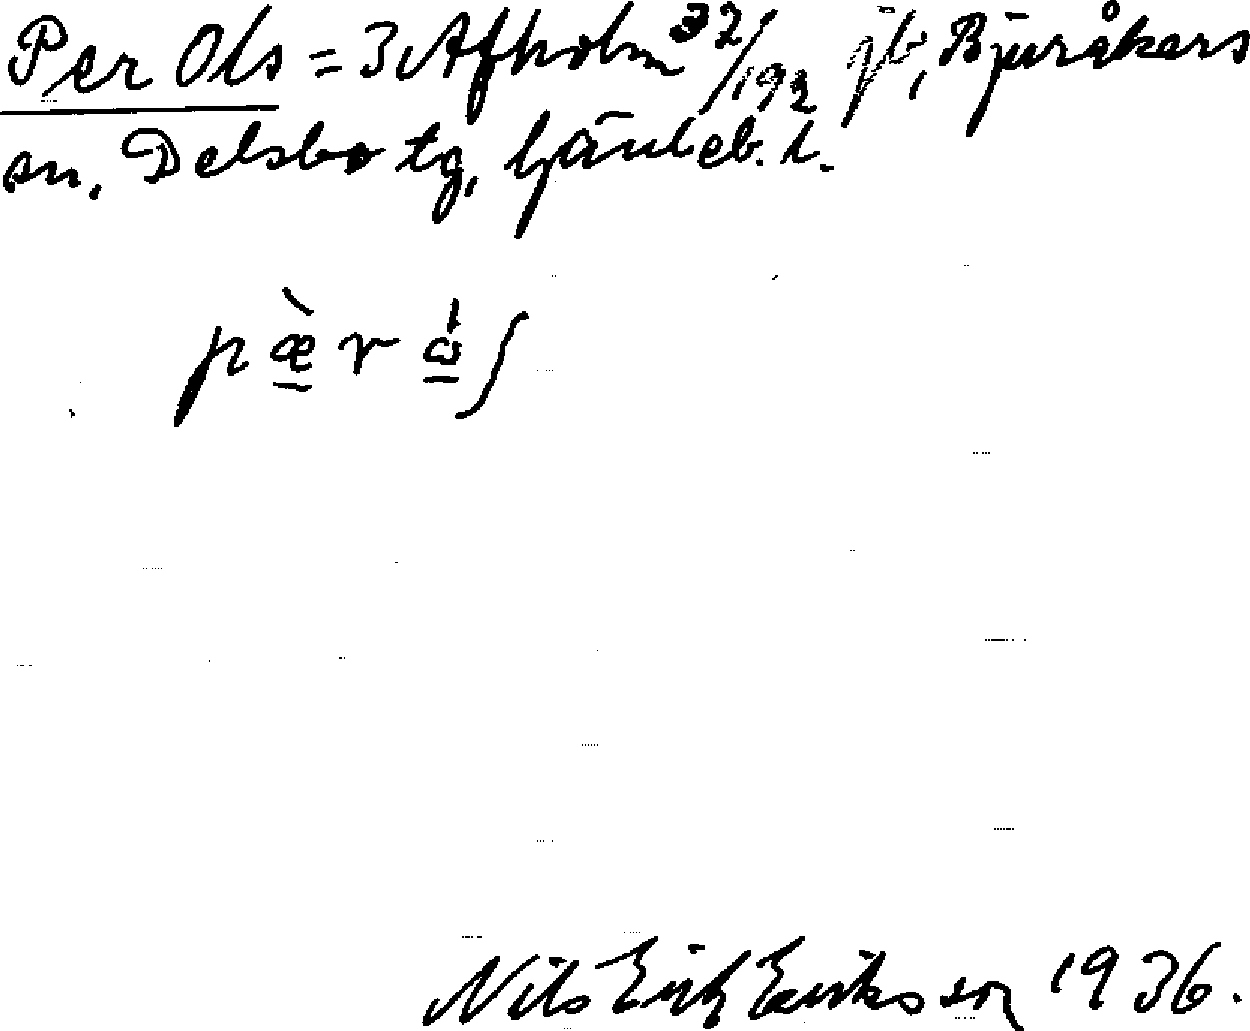 Per Ols = 3 Avholm 32/192 jb, Bjuråkers
sn. Delsbo tg,
pæ̀r
Nils Erik Eriksson 1936.